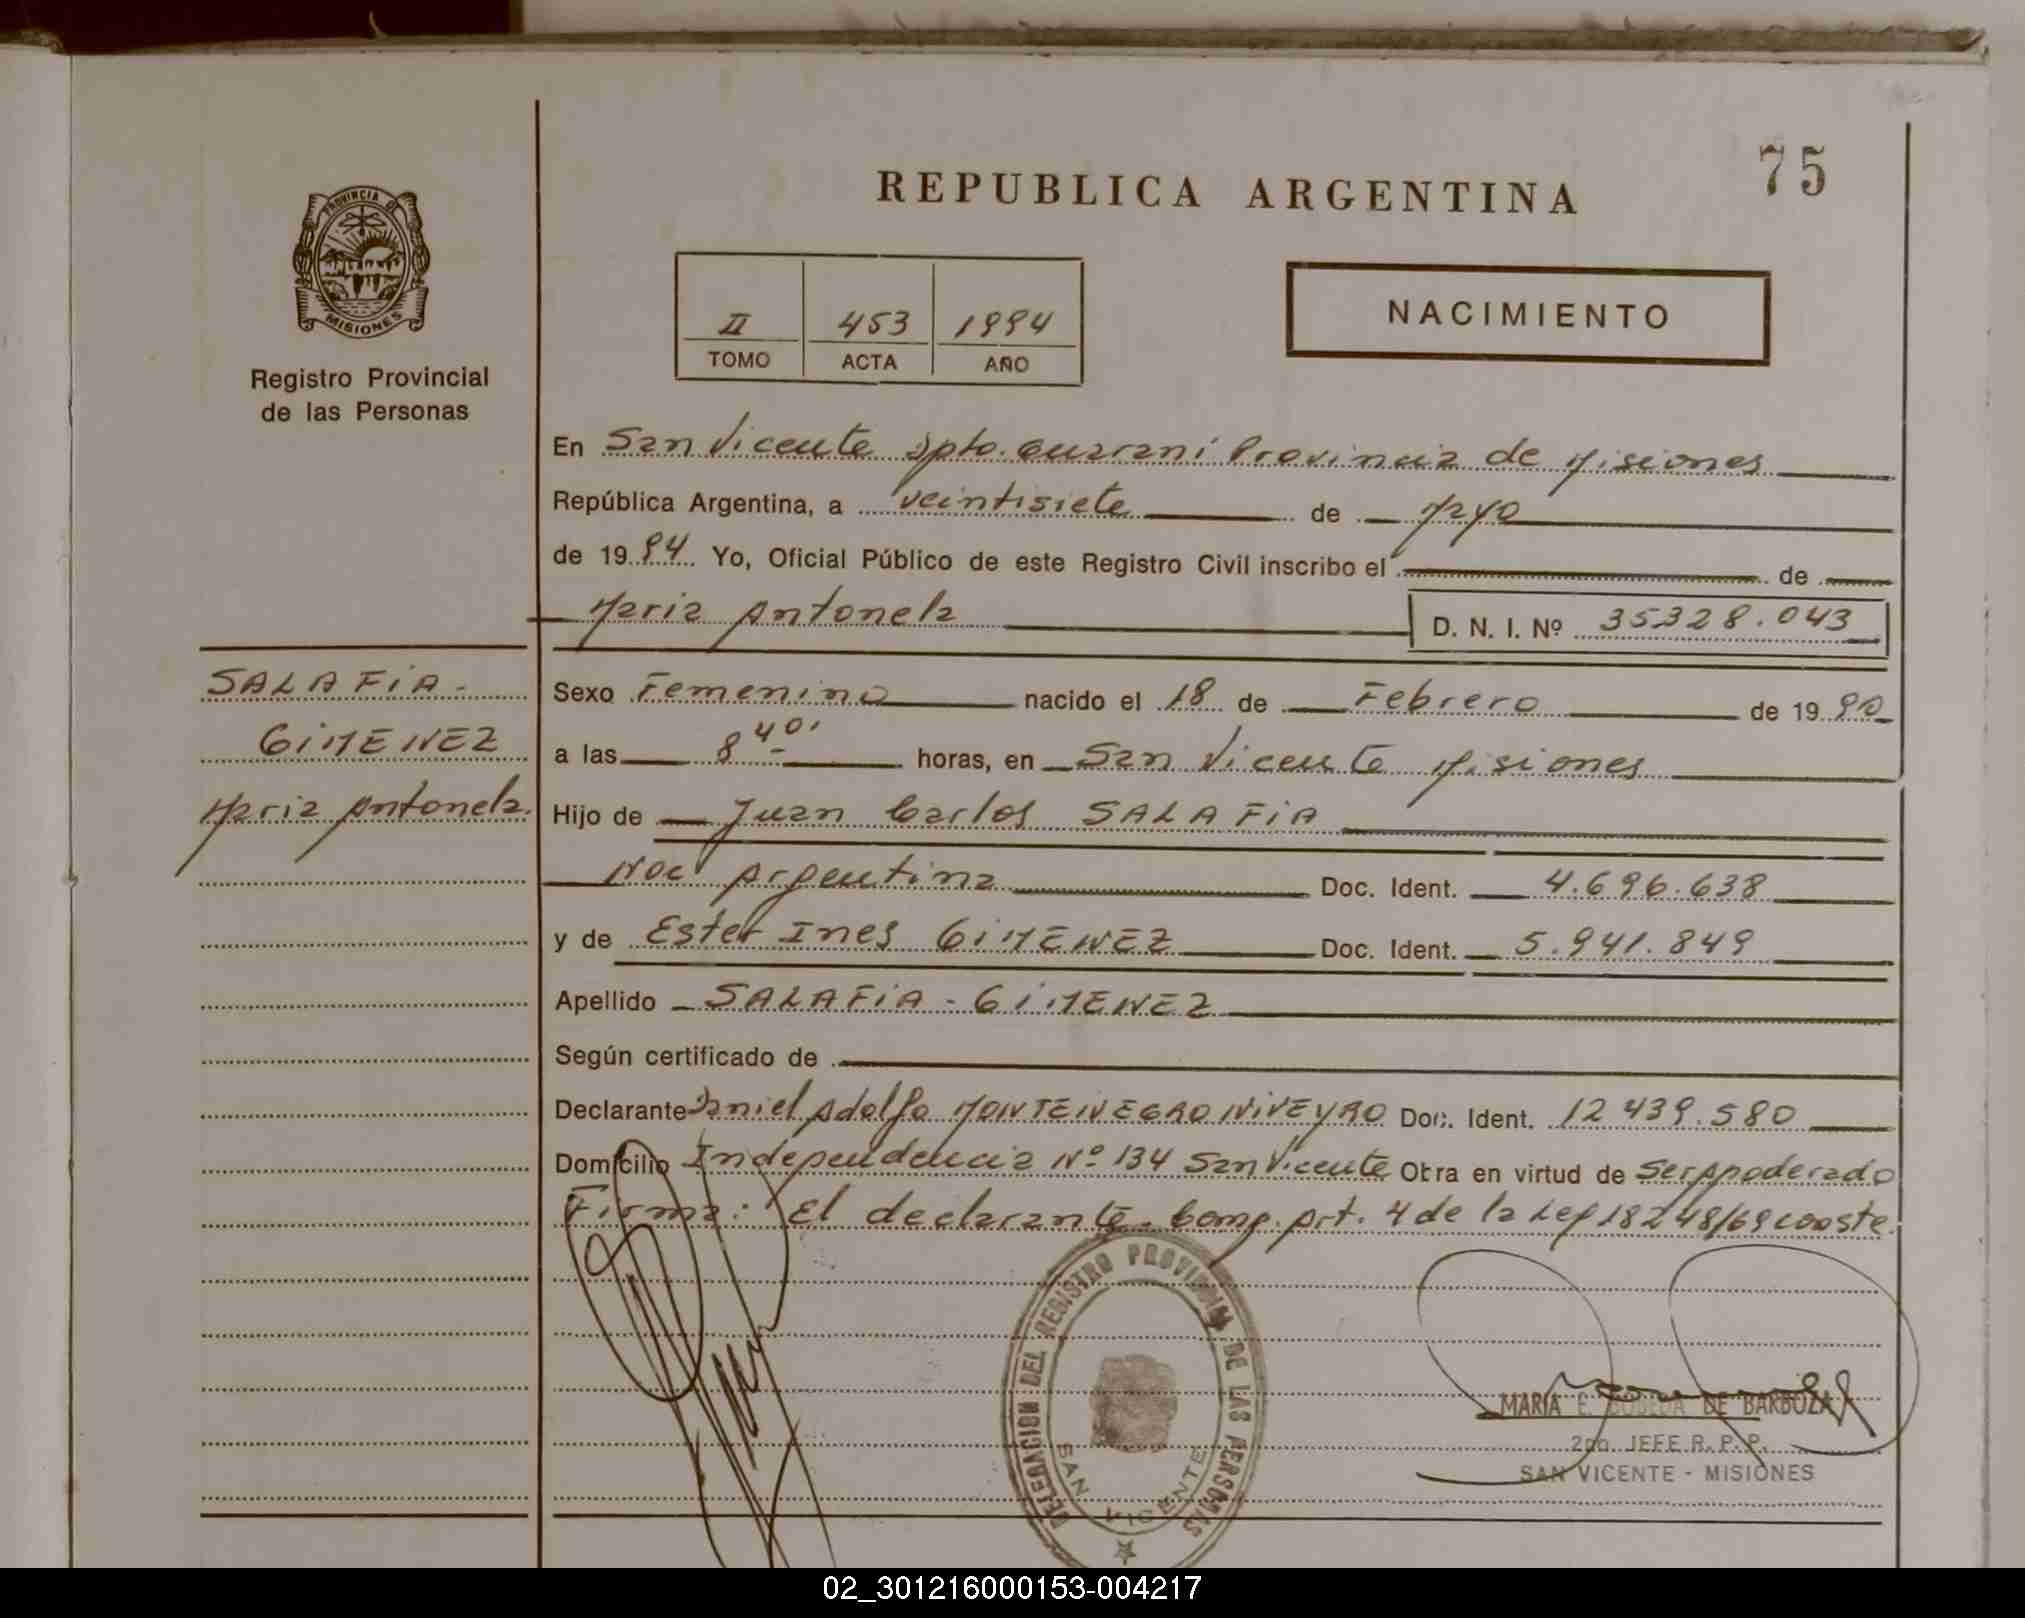 75
REPUBLICA ARGENTINA
PROVINCIA DE
MISIONES
Registro Provincial
de las Personas
II 453 1994
TOMO ACTA AÑO
NACIMIENTO
En San Vicente Dpto. Guaraní Provincia de Misiones
República Argentina, a veintisiete de Mayo
de 1994 Yo, Oficial Público de este Registro Civil inscribo el de
Maria Antonela D. N. I. Nº 35328.043
SALAFIA-
GIMENEZ
Maria Antonela.
Sexo Femenino nacido el 18 de Febrero de 1990
a las 8 40' horas, en San Vicente Misiones
Hijo de Juan Carlos SALAFIA
Nac Argentina Doc. Ident. 4.696.638
y de Ester Ines GIMENEZ Doc. Ident. 5.941.849
Apellido SALAFIA-GIMENEZ
Según certificado de
Declarante Daniel Adolfo MONTENEGRO NIVEYRO Doc. Ident. 12 439.580
Domicilio Independencia Nº 134 San Vicente Obra en virtud de Ser Apoderado
Firma: El declarante. Comp. Art. 4 de la Ley 18248/69 conste.
DELEGACION DEL REGISTRO PROVINCIAL DE LAS PERSONAS
SAN VICENTE
MARIA E. BOBEDA DE BARBOZA
2do. JEFE R. P. P.
SAN VICENTE - MISIONES
02_301216000153-004217